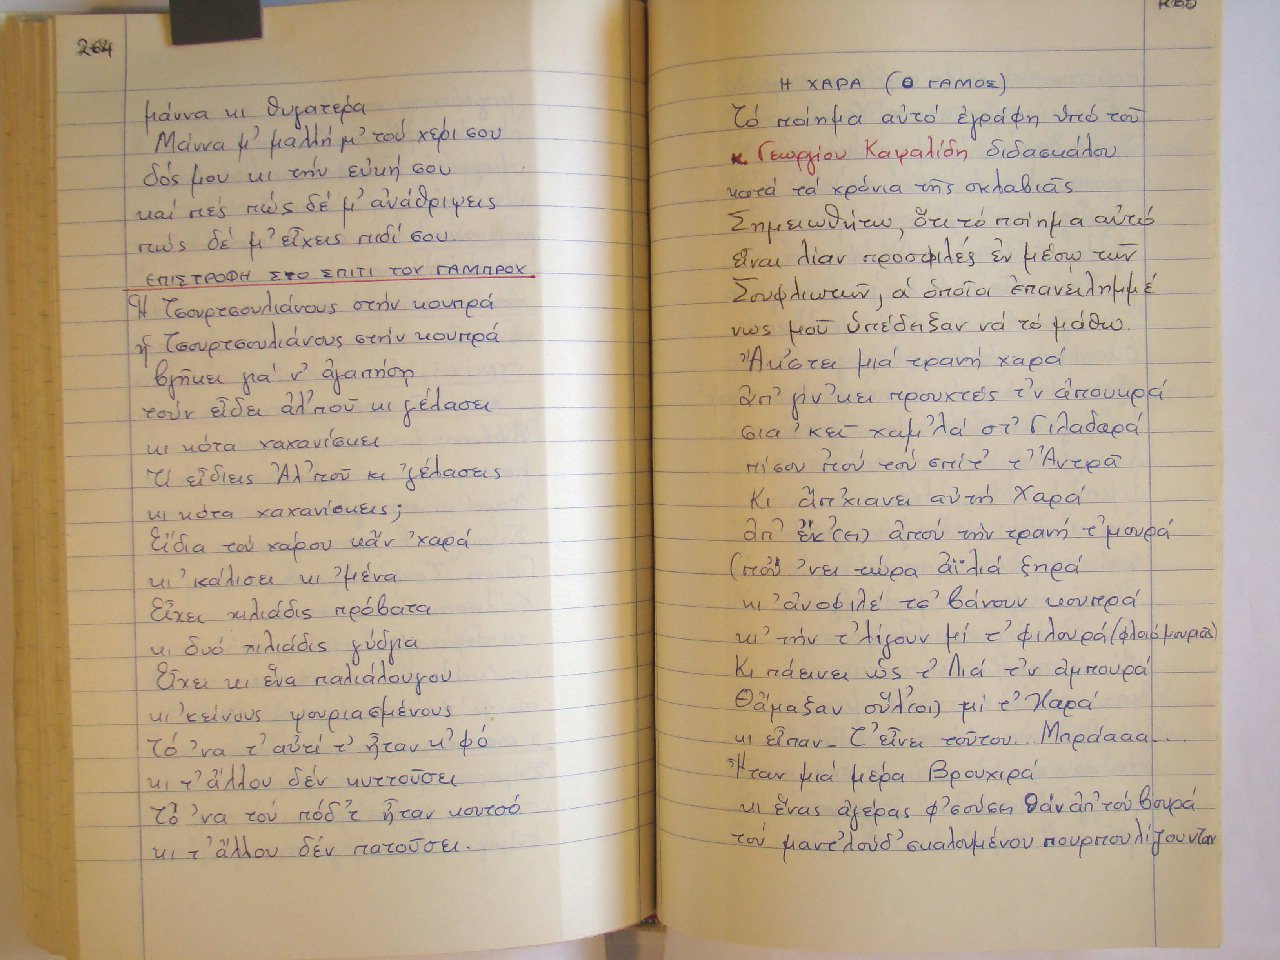 264
μάννα κι θυγατέρα
Μάννα μ' μαλλή μ' τού χέρι σου
δός μου κι τήν εὐκή σου
καί πές πώς δέ μ' ἀνάθριψεις
πώς δέ μ' εἶχεις πιδί σου.
ΕΠΙΣΤΡΟΦΗ ΣΤΟ ΣΠΙΤΙ ΤΟΥ ΓΑΜΠΡΟΥ
Ἡ Τσουρτσουλιάνους στήν κουπρά
ἡ Τσουρτσουλιάνους στήν κουπρά
βγῆκει γιά ν' ἀγαπήση
τούν εἶδει ἀλ'ποῦ κι γέλασει
κι κότα χαχανίσκει
Τί εἶδιεις Ἀλ'ποῦ κι 'γέλασεις
κι κότα χαχανίσκεις;
Εἴδια τού χάρου κἄν 'χαρά
κι 'κάλισει κι 'μένα
Εἶχει χιλιάδις πρόβατα
κι δυό πιλιάδις γύδγια
Εἶχει κι ἕνα παλιάλουγου
κι 'κείνους ψουριασμένους
Τό 'να τ' αὐτί τ' ἦταν κ'φό
κι τ' ἄλλου δέν κυττοῦσει
Τό 'να τού πόδ'τ ἦταν κουτσό
κι τ' ἄλλου δέν πατοῦσει.
265
Η ΧΑΡΑ (Ο ΓΑΜΟΣ)
Τό ποίημα αὐτό ἐγράφη ὑπό τοῦ
κ. Γεωργίου Καψαλίδη διδασκάλου
κατά τά χρόνια τῆς σκλαβιᾶς
Σημειωθήτω, ὅτι τό ποίημα αὐτό
εἶναι λίαν προσφιλές ἐν μέσῳ τῶν
Σουφλιωτῶν, ἀ ὁποῖοι ἐπανειλημμέ
νως μοῦ ὑπέδειξαν νά τό μάθω.
Ἀκ'στει μιά τρανή χαρά
ἀπ' γίν'κει προυχτές τ'ν ἀπουκρά
σια 'κεῖ χαμ'λά στ' Γιλαδαρά
πίσου 'πού τού σπίτ' τ' Ἀντρᾶ
Κι ἄπ'χιανει αὐτή Χαρά
ἀπ' ἐκ'(ει) ἀπού τήν τρανή τ'μουρά
(πού 'νει τώρα ἀϊλιά ξηρά
κι' ἀνοφιλέ τσ' βάνουν κουπρά
κι' τήν τ'λίγουν μί τ' φιλουρά (φλοιό μουριάς)
Κι πάεινει ὥς τ' Λιά τ'ν ἀμπουρά
Θἄμαξαν οὕλ(οι) μί τ' Χαρά
κι εἶπαν - Τ' εἶνει τοῦτου... Μπράααα...
Ἦταν μιά μέρα Βρουχιρά
κι ἕνας ἀγέρας φ'σούσει θάν ἀπ' τού βουρά
τού μαντ'λούδ' σκαλουμένου πουρπουλίζουνταν